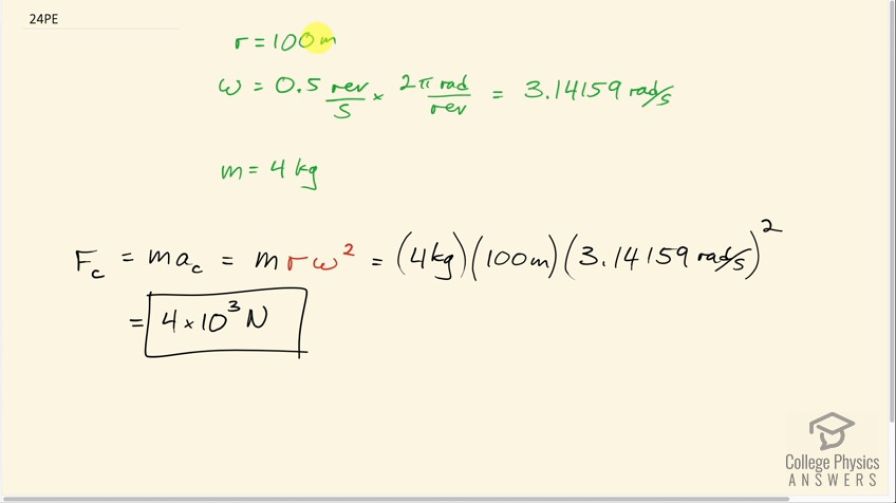 24PE
r = 100m
ω = 0.5 rev/s × 2π rad/rev = 3.14159 rad/s
m = 4 kg
F_c = ma_c = mrω² = (4kg)(100m)(3.14159 rad/s)²
= 4×10³ N
College Physics
ANSWERS